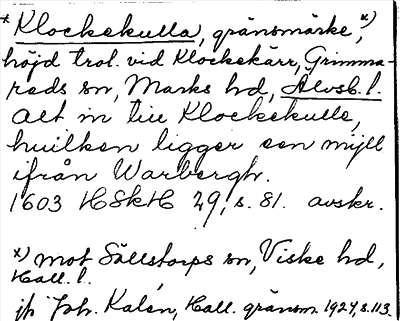 * Klockekulla, gränsmärke, *)
höjd trol. vid Klockekärr, Grimma-
reds sn, Marks hd, Älvsb. l.
Alt in till Klockekulle,
huilken ligger een mijll
ifrån Warbergh.
1603 HSkH 29, s. 81. avskr.
*) mot Sällstorps sn, Viske hd,
Hall. l.
jfr Joh. Kalén, Hall. gränsm. 1924, s. 113.